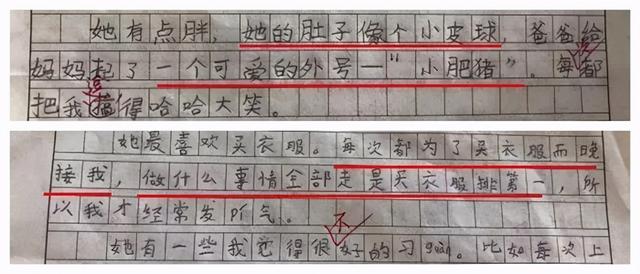 她有点胖，她的肚子像个小皮球，爸爸给
妈妈起了一个可爱的外号一“小肥猪”。每都
把我搞得哈哈大笑。
她最喜欢买衣服。每次都为了买衣服而晚
接我，做什么事情全部走是买衣服排第一，所
以我才经常发pí气。
不
她有一些我觉得很好的习guàn。比如每次上